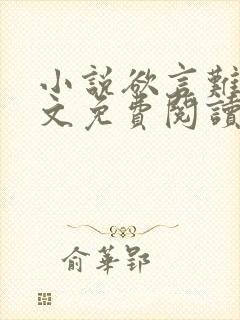 小說欲言難
文免費閱讀
俞華郢